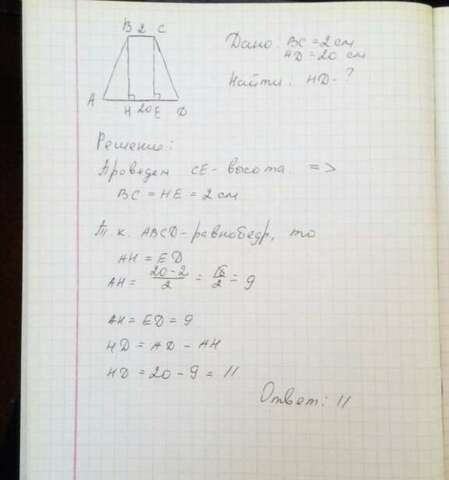 B 2 C
A H 20 E D
Дано: BC = 2 см
AD = 20 см
Найти: HD - ?
Решение:
Проведем CE - высота =>
BC = HE = 2 см
Т.к. ABCD - равнобедр, то
AH = ED
AH = \frac{20-2}{2} = \frac{18}{2} = 9
AH = ED = 9
HD = AD - AH
HD = 20 - 9 = 11
Ответ: 11